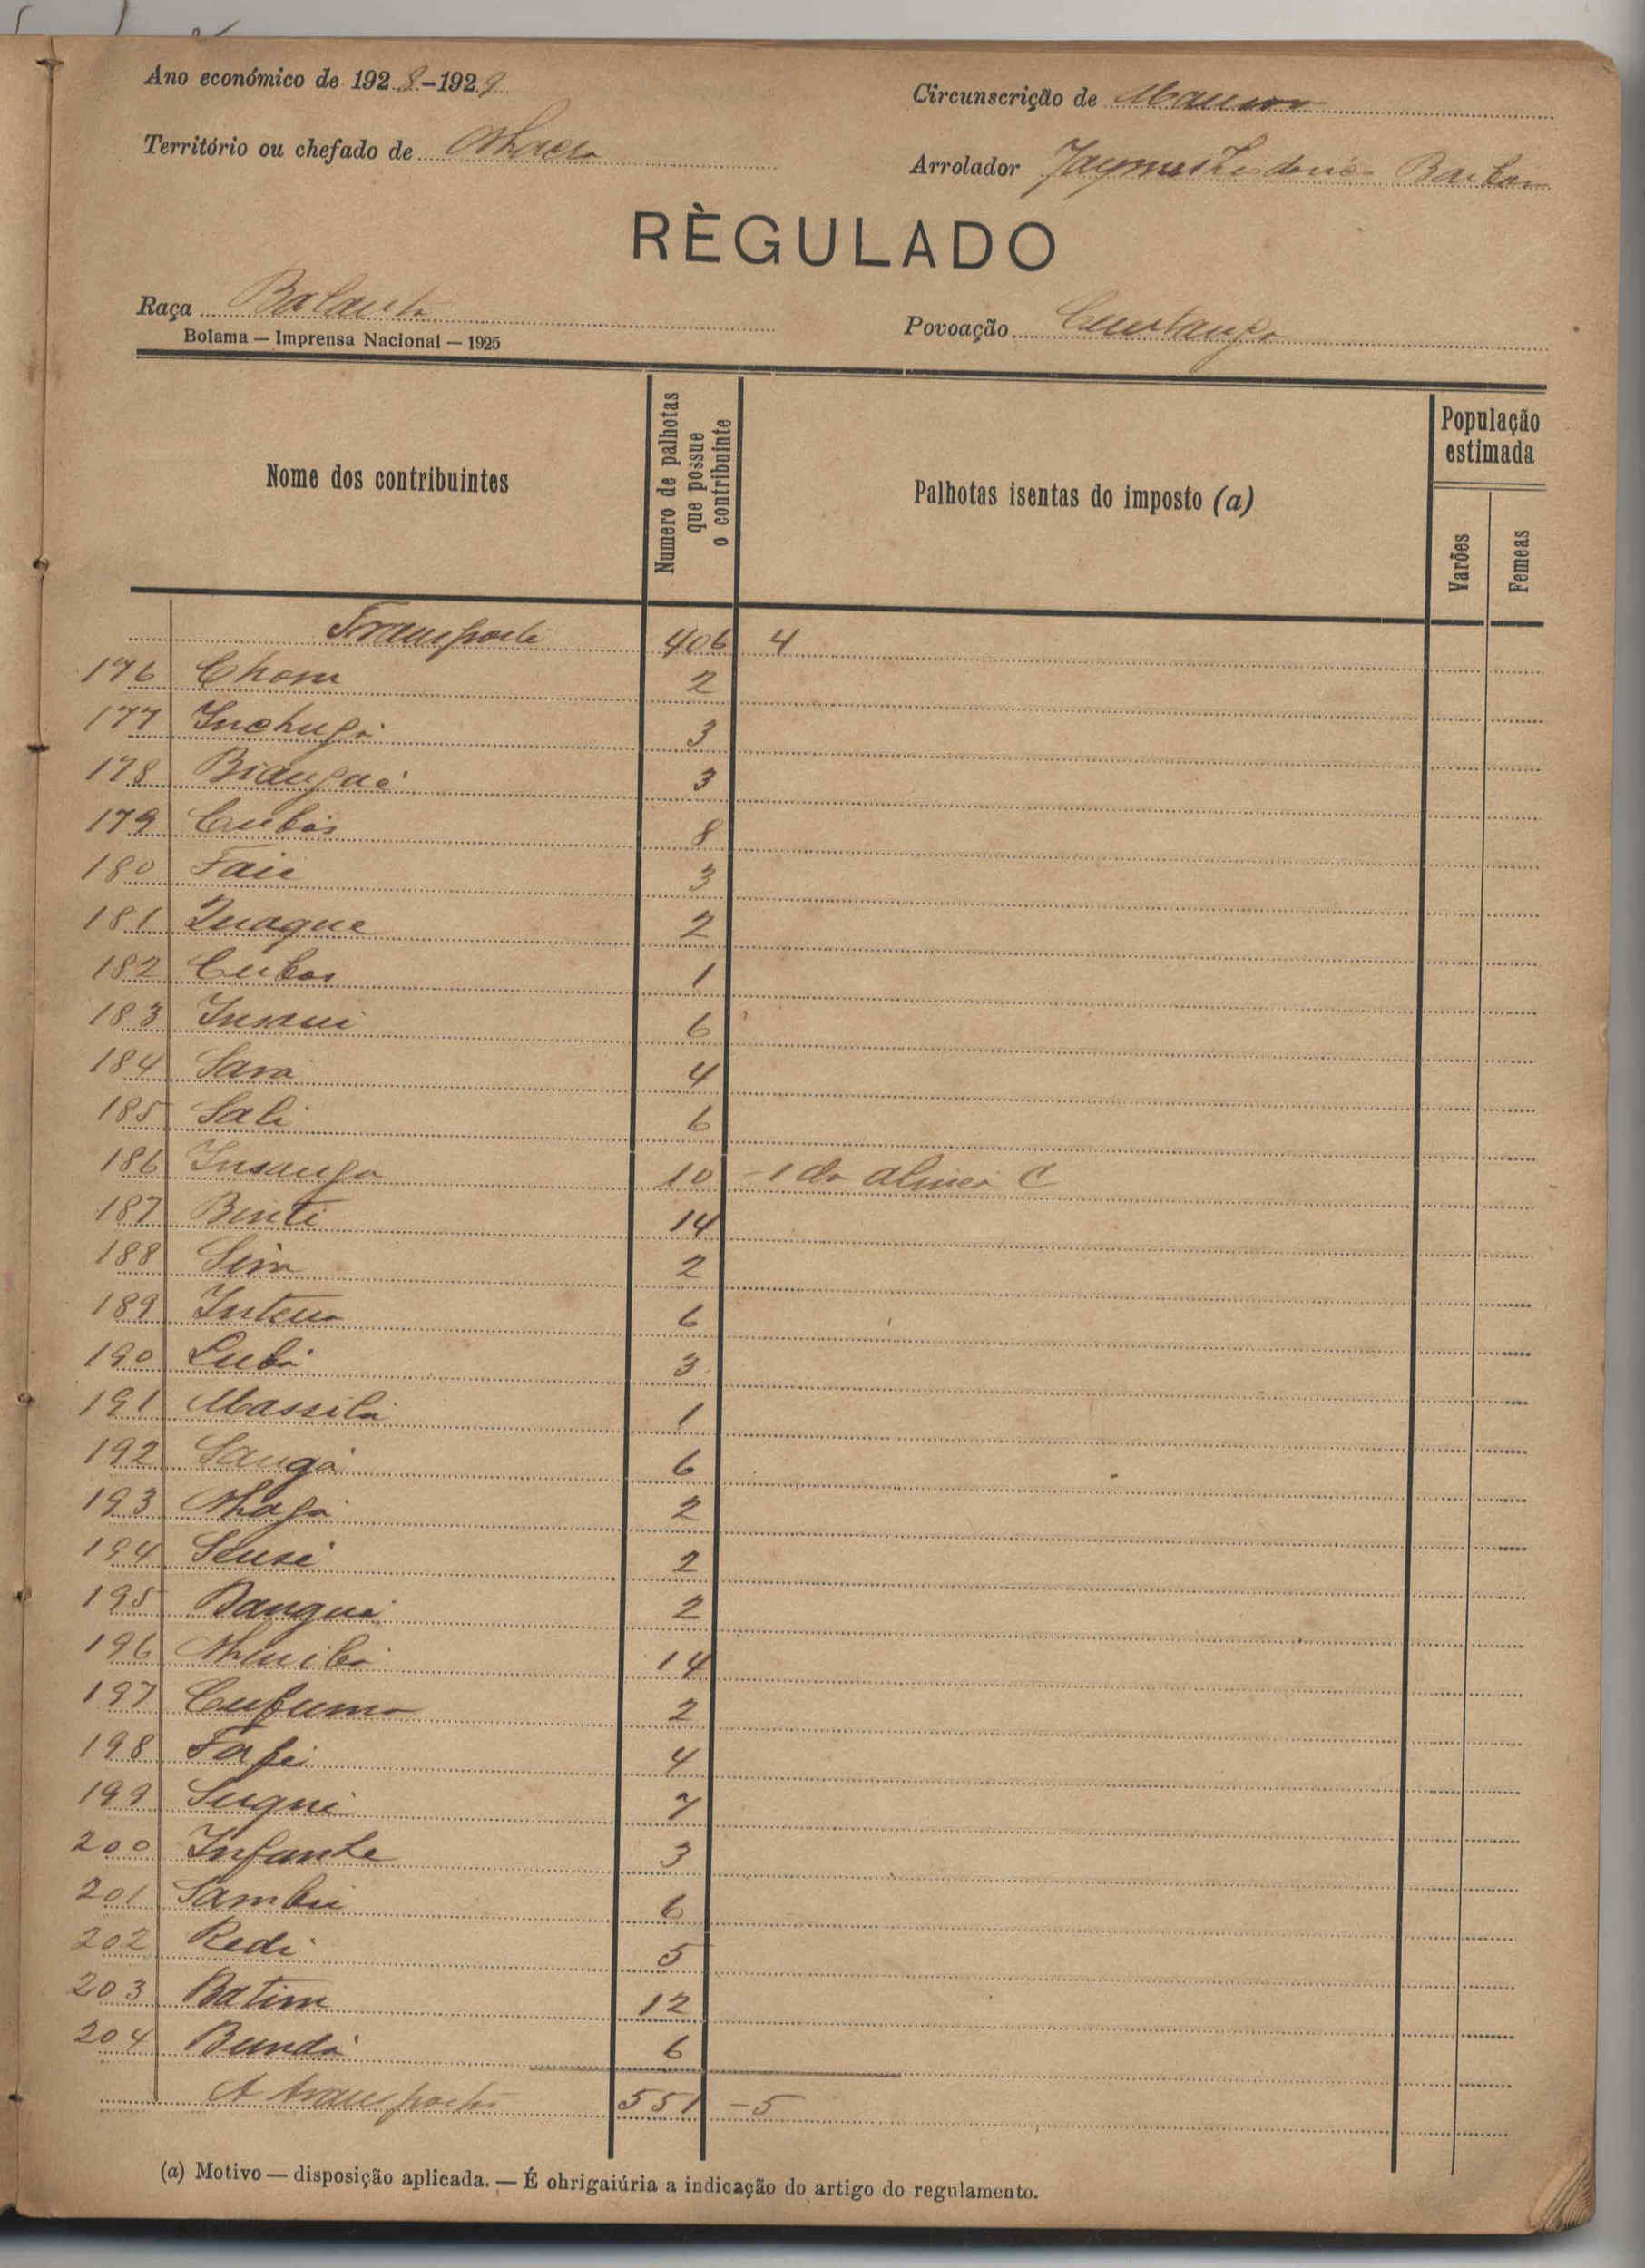 Ano económico de 1928-1929
Circunscrição de Mansoa
Território ou chefado de Nhacra
Arrolador Jayme Barbosa
RÈGULADO
Raça Balanta
Povoação
Bolama — Imprensa Nacional — 1925
Nome dos contribuintes
Numero de palhotas que possue o contribuinte
Palhotas isentas do imposto (a)
População estimada
Varões
Femeas
Transporte 406 4
176 Chom 2
177 Inchugá 3
178 Biangué 3
179 Cubós 8
180 Faii 3
181 Quaque 2
182 Cubos 1
183 6
184 Saná 4
185 Sali 6
186 Insanga 10 -1 da alinea C
187 Binté 14
188 2
189 6
190 3
191 Massilá 1
192 Sangá 6
193 Nhagá 2
194 2
195 Bangue 2
196 14
197 Cufumo 2
198 Fafé 4
199 Sugué 7
200 Infande 3
201 Sambú 6
202 Redi 5
203 Batim 12
204 Bundá 6
A transportar 551 -5
(a) Motivo — disposição aplicada. — É ohrigaiúria a indicação do artigo do regulamento.